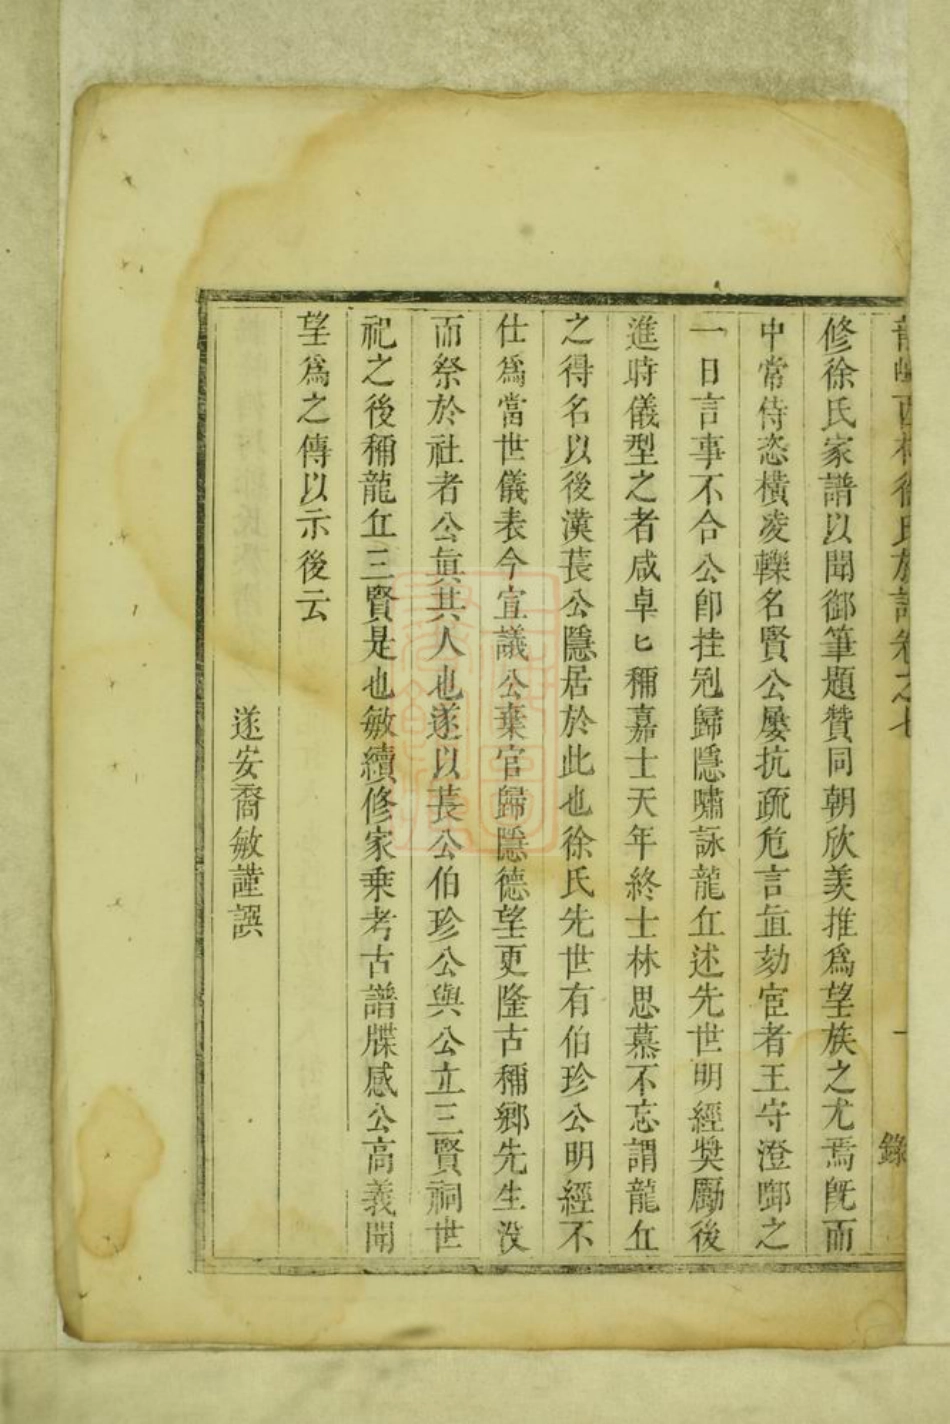 徐氏族譜卷之七 一 錄
修徐氏家譜以聞御筆題贊同朝欣羨推為望族之尤焉旣而
中常侍恣橫凌轢名賢公屡抗疏危言直劾宦者王守澄啣之
一日言事不合公卽挂冠歸隱嘯詠龍丘述先世明經奬勵後
進時儀型之者咸卓匕稱嘉士天年終士林思慕不忘謂龍丘
之得名以後漢萇公隱居於此也徐氏先世有伯珍公明經不
仕為當世儀表今宣議公棄官歸隱德望更隆古稱鄉先生没
而祭於社者公眞其人也遂以萇公伯珍公與公立三賢祠世
祀之後稱龍丘三賢是也敏續修家乘考古譜牒感公高義聞
望為之傳以示後云
遂安裔敏謹譔